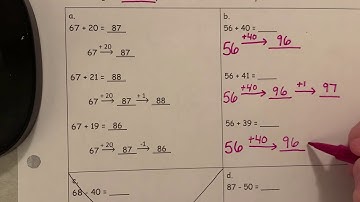 a.
67 + 20 = 87
+20
67 → 87
67 + 21 = 88
+20 +1
67 → 87 → 88
67 + 19 = 86
+20 -1
67 → 87 → 86
b.
56 + 40 = ____
+40
56 → 96
56 + 41 = ____
+40 +1
56 → 96 → 97
56 + 39 = ____
+40
56 → 96
c.
68 - 40 = ____
d.
87 - 50 = ____